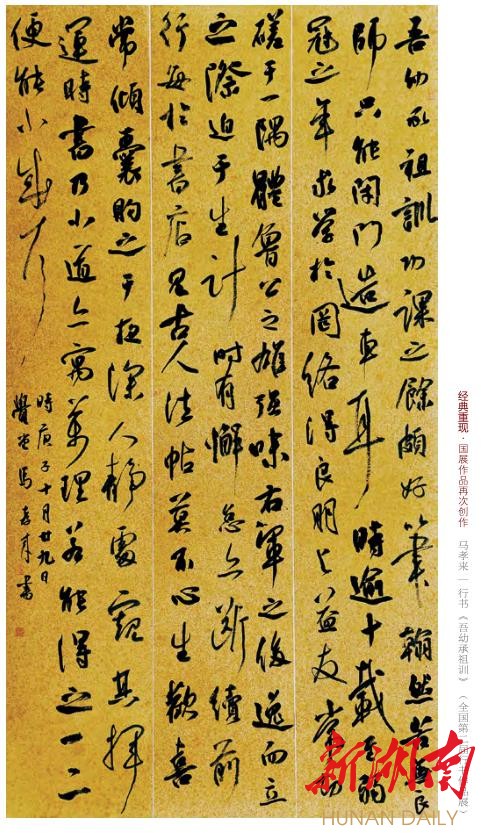 吾幼承祖訓功課之餘頗好筆翰然苦無良
師只能閉門造車耳時逾十載至弱
冠之年求學於網絡得良朋与益友常切
磋于一隅體魯公之雄强味右軍之俊逸而立
之際迫于生計時有懈怠亦斷續前
行每於書店見古人法帖莫不心生歡喜
常傾囊購之于夜深人靜處窺其揮
運時書乃小道亦寓萬理若能得之一二
便能小成
時庚子十月廿九日
馬孝來書
经典重现·国展作品再次创作 马孝来｜行书《吾幼承祖训》（全国第二届 品展）
新湖南
HUNAN DAILY